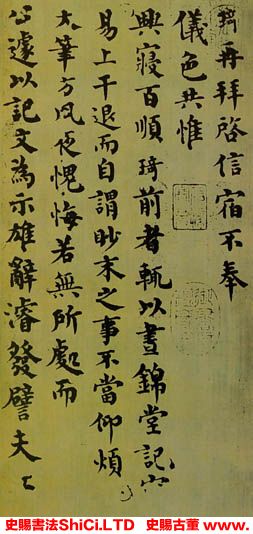 琦再拜啓信宿不奉
儀色共惟
興寢百順琦前者輒以晝錦堂記容
易上干退而自謂眇末之事不當仰煩
大筆方夙夜愧悔若無所處而
公遽以記文為示雄辭濬發譬夫
史賜書法ShiCi.LTD 史賜古董 www.作